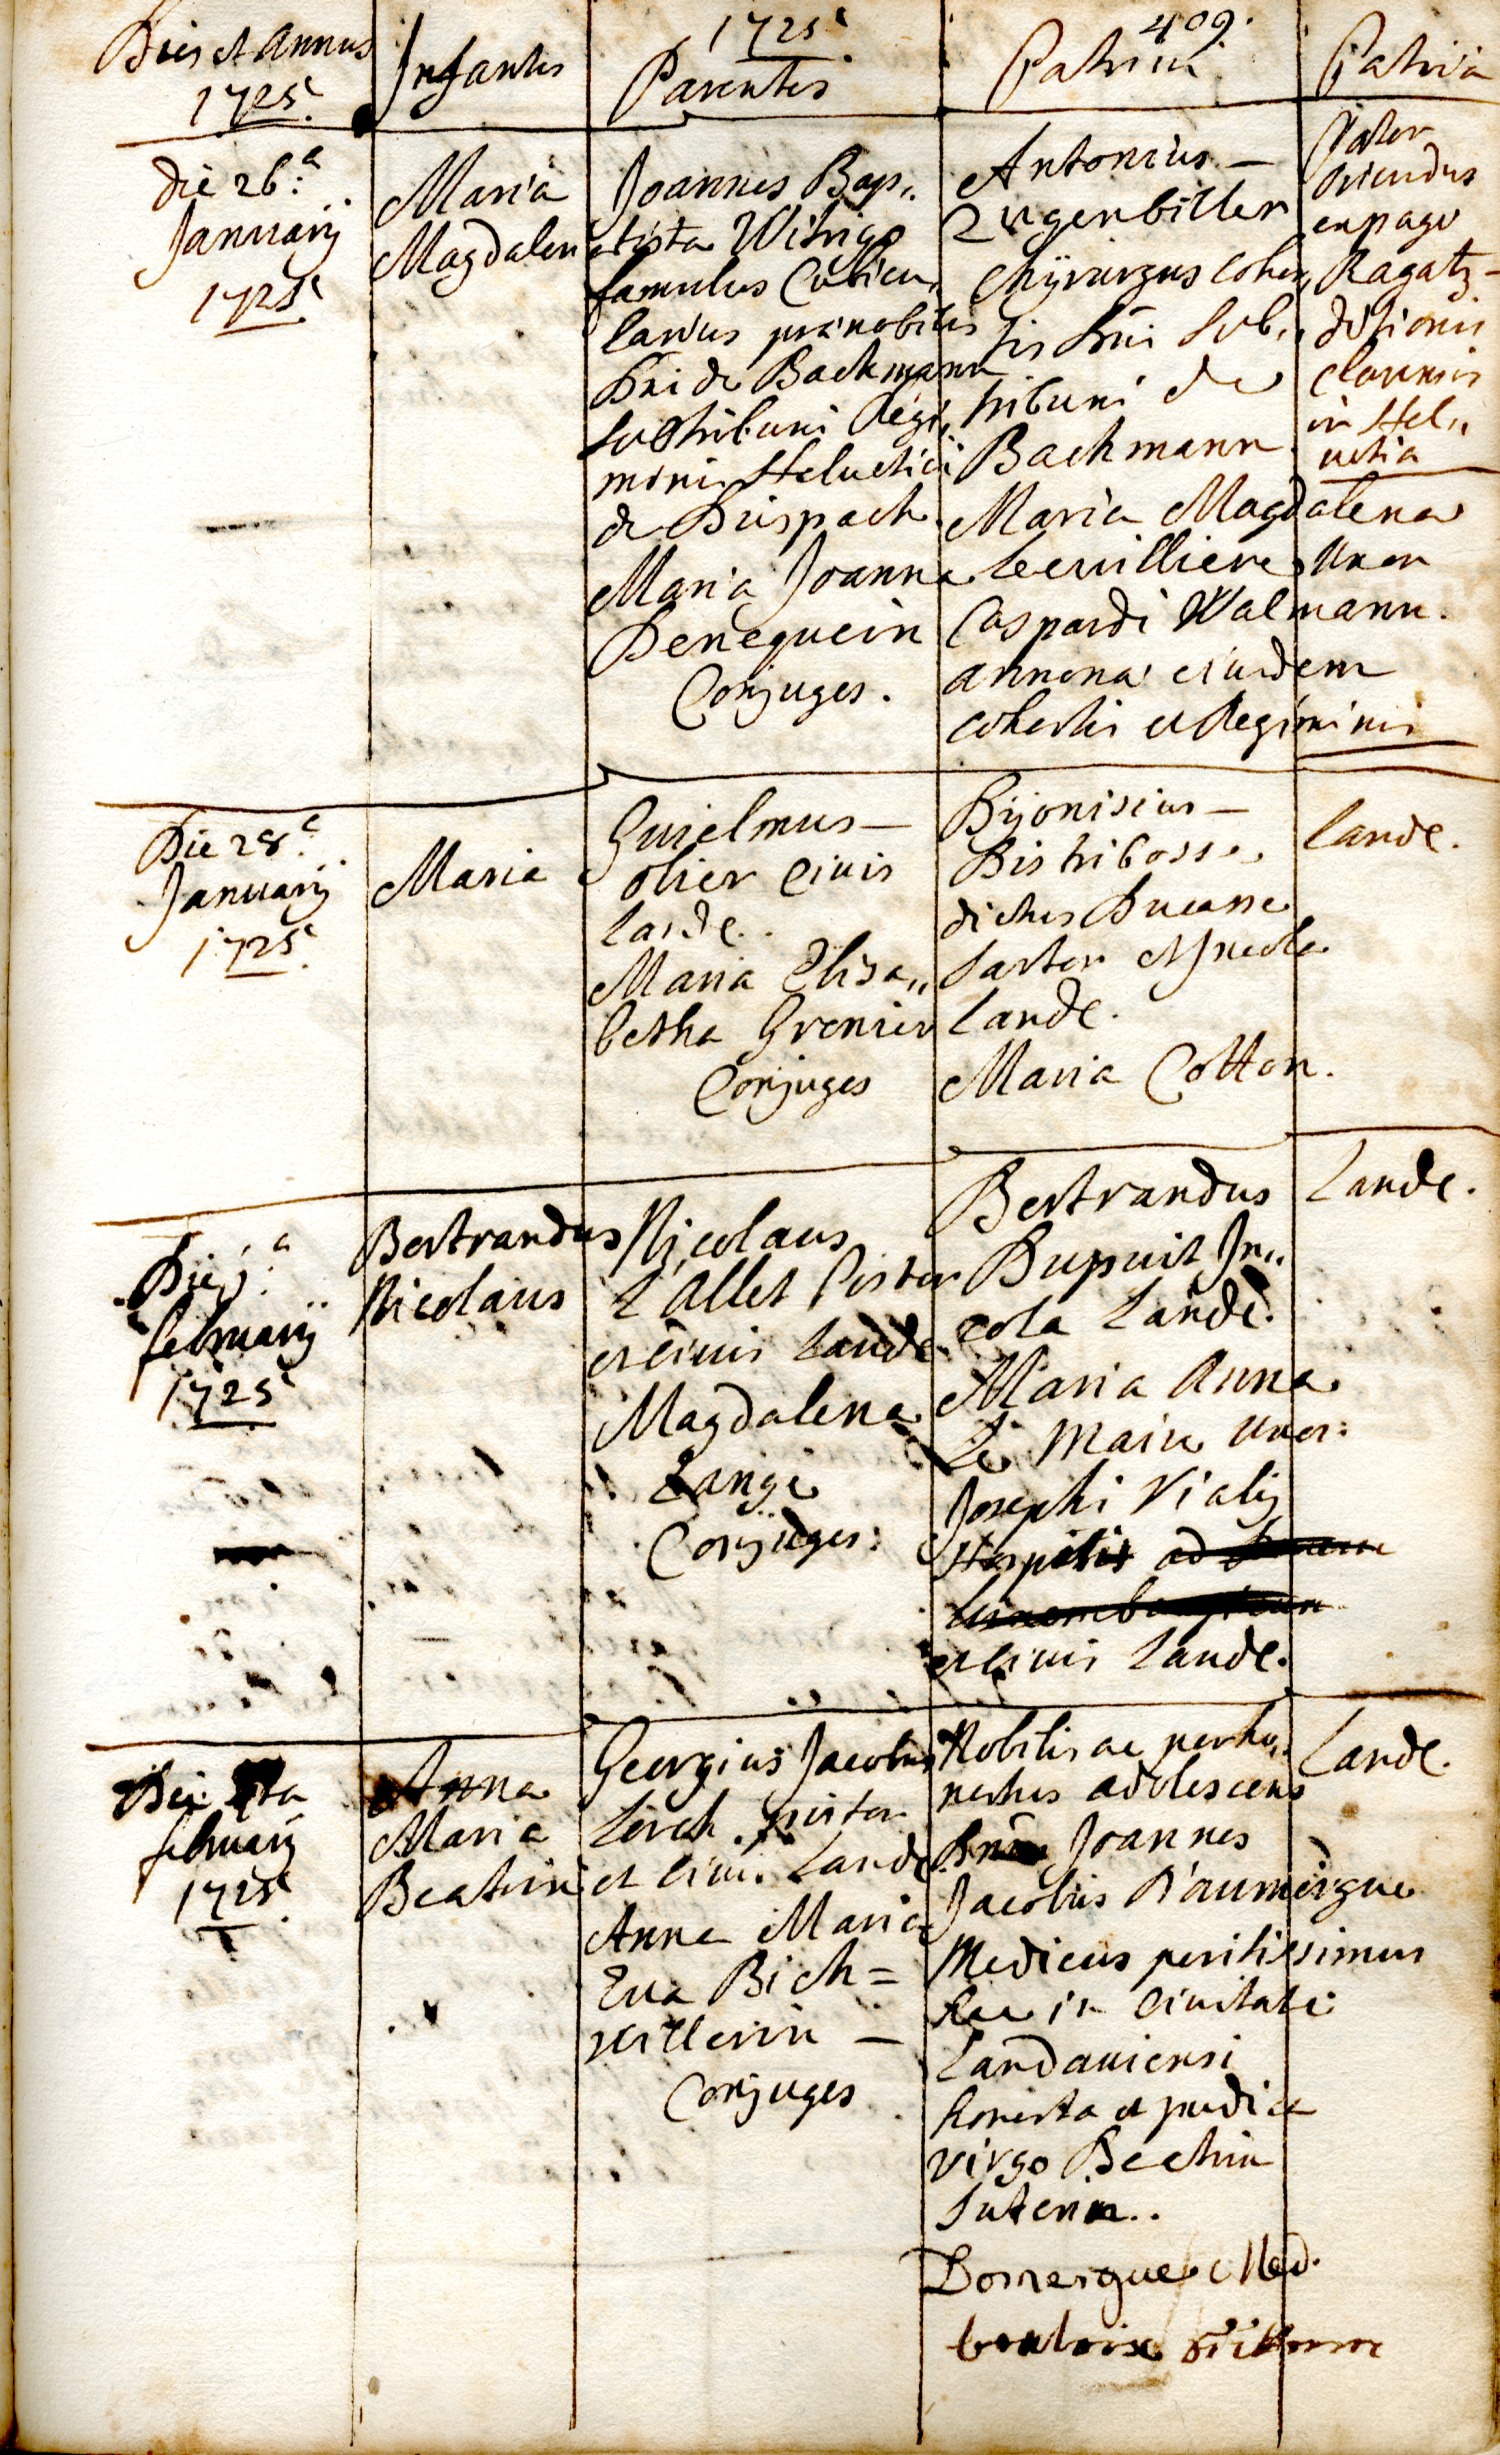 1725
409.
Dies et Annus
1725.
Infantes
Parentes
Patrini
Patria
die 26.a
Januarij
1725
Maria
Magdalen
Joannes Bap„
tista Witrigo
famulus Cubicu„
larius prænobilis
Dni de Bachmann
subtribuni Regi„
minis Helvetici
de
Maria Joanna
Denequein
Conjuges.
Antonius —
Zugenbiller
Chyrurgus Cohor„
tis Dni Sub„
tribuni de
Bachmann
Maria Magdalena
uxor
Caspardi Walmann.
annona ejusdem
cohortis et Regiminis
Pater
oriundus
ex pago
Ragatz —
ditionis
Claronsis
in Hel„
vetia
Die 28.a
Januarij
1725.
Maria
Guielmus —
olier civis
Landt.
Maria Elisa„
betha Grenier
Conjuges
Dijonisius —
Bistribosse
dictus Ducasse
Sartor et Incola
Landt.
Maria Cotton.
Landt.
februarij
1725
Bertrandus
Nicolaus
Nicolaus
L'allet Pistor
et Civis Landt.
Magdalena
Langi
Conjuges:
Bertrandus
Dupuit In„
cola Landt.
Maria Anna
Le Maire uxor:
Josephi Vialis
Hospitis ad
et civis Landt.
Landt.
februarij
1725.
Anna
Maria
Beatrin
Georgius Jacobus
Lerch pistor
et civis Landt
Anna Maria
Eva Bich=
willerin —
Conjuges
Nobilis ac perho„
nestus adolescens
Joannes
Jacobus D'aumergue
Medicus peritissimus
hac in Civitate
Landaviensi
honesta et pudica
virgo Beatrin
Suterin..
Domergue Med.
Landt.